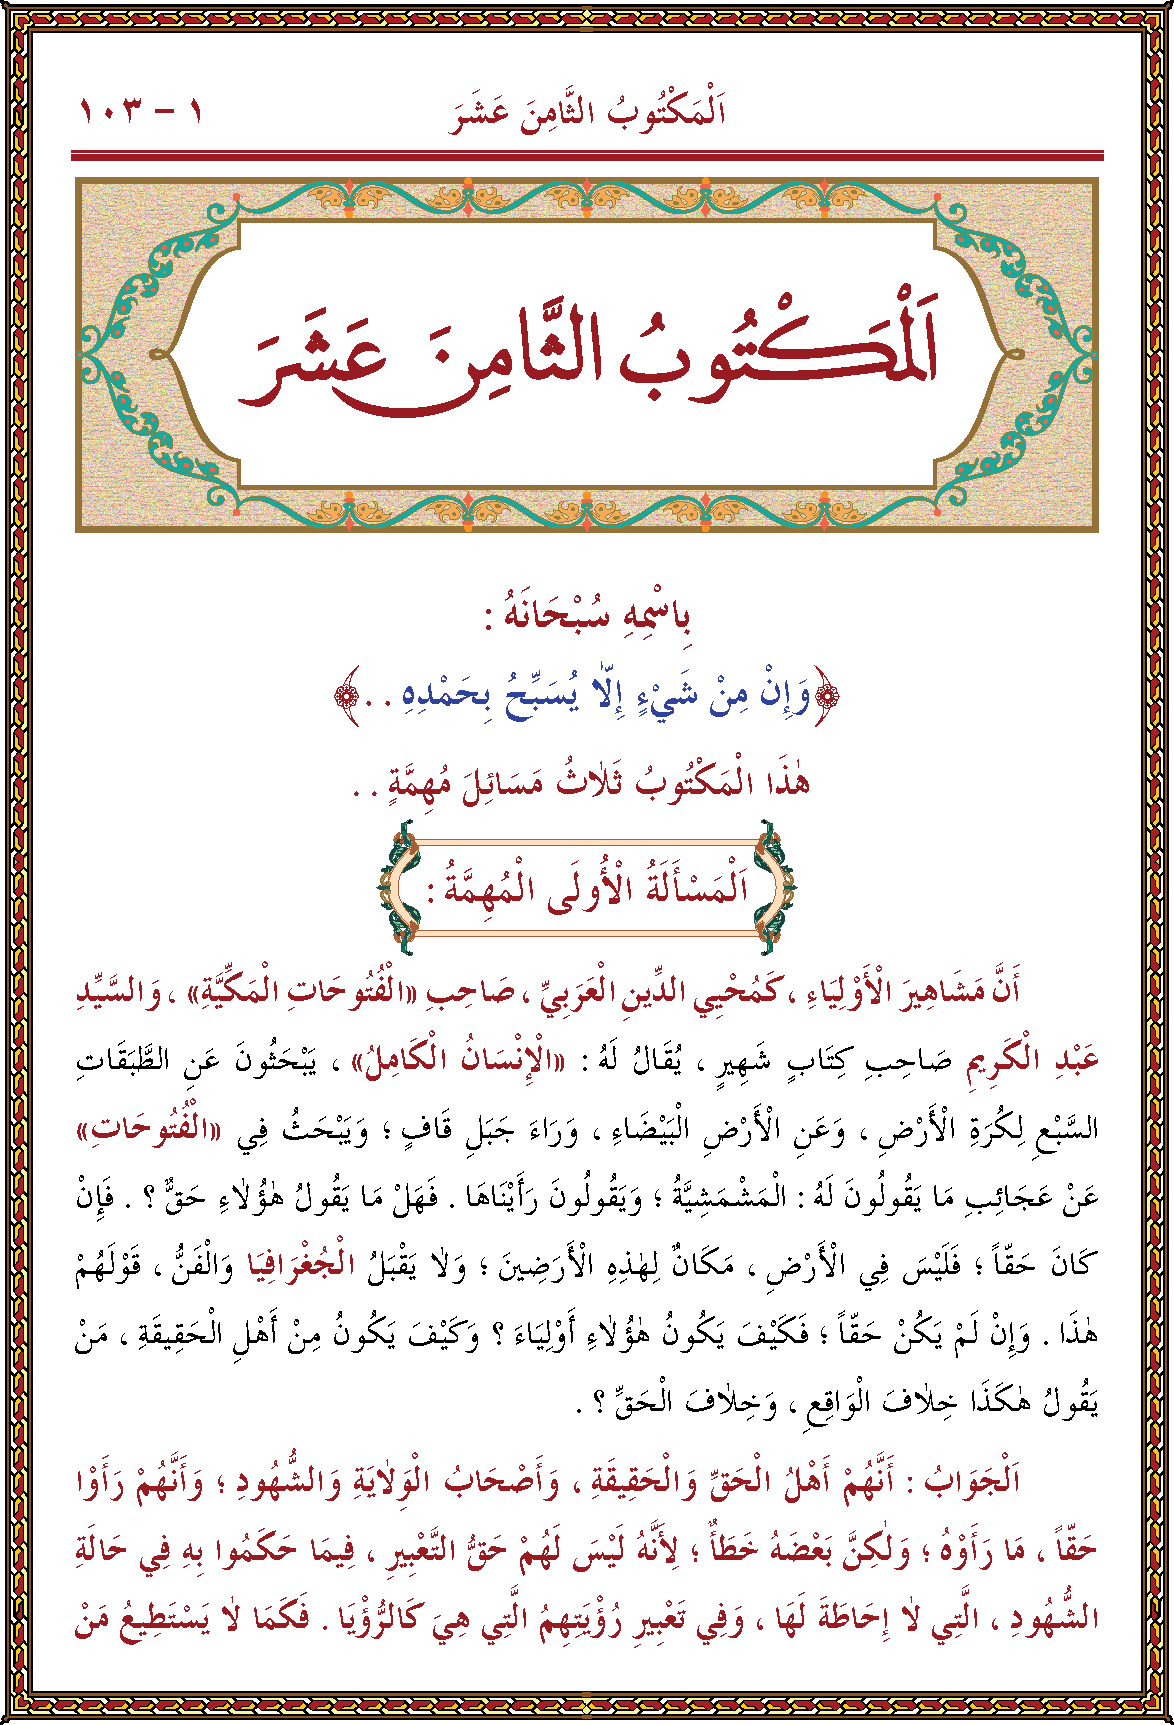 اَلْمَكْتُوبُ الثَّامِنَ عَشَرَ ١ – ١٠٣
اَلْمَكْتُوبُ الثَّامِنَ عَشَرَ
بِاسْمِهِ سُبْحَانَهُ :
﴿وَإِنْ مِنْ شَيْءٍ إِلَّا يُسَبِّحُ بِحَمْدِهِ . .﴾
هٰذَا الْمَكْتُوبُ ثَلٰاثُ مَسَائِلَ مُهِمَّةٍ . .
اَلْمَسْأَلَةُ الْأُولَى الْمُهِمَّةُ :
أَنَّ مَشَاهِيرَ الْأَوْلِيَاءِ ، كَمُحْيِي الدِّينِ الْعَرَبِيِّ ، صَاحِبِ «الْفُتُوحَاتِ الْمَكِّيَّةِ» ، وَالسَّيِّدِ
عَبْدِ الْكَرِيمِ صَاحِبِ كِتَابٍ شَهِيرٍ ، يُقَالُ لَهُ : «الْإِنْسَانُ الْكَامِلُ» ، يَبْحَثُونَ عَنِ الطَّبَقَاتِ
السَّبْعِ لِكُرَةِ الْأَرْضِ ، وَعَنِ الْأَرْضِ الْبَيْضَاءِ ، وَرَاءَ جَبَلِ قَافٍ ؛ وَيَبْحَثُ فِي «الْفُتُوحَاتِ»
عَنْ عَجَائِبِ مَا يَقُولُونَ لَهُ : الْمَشْمَشِيَّةُ ؛ وَيَقُولُونَ رَأَيْنَاهَا . فَهَلْ مَا يَقُولُ هٰؤُلٰاءِ حَقٌّ ؟ . فَإِنْ
كَانَ حَقّاً ؛ فَلَيْسَ فِي الْأَرْضِ ، مَكَانٌ لِهٰذِهِ الْأَرَضِينَ ؛ وَلٰا يَقْبَلُ الْجُغْرَافِيَا وَالْفَنُّ ، قَوْلَهُمْ
هٰذَا . وَإِنْ لَمْ يَكُنْ حَقّاً ؛ فَكَيْفَ يَكُونُ هٰؤُلٰاءِ أَوْلِيَاءَ ؟ وَكَيْفَ يَكُونُ مِنْ أَهْلِ الْحَقِيقَةِ ، مَنْ
يَقُولُ هٰكَذَا خِلٰافَ الْوَاقِعِ ، وَخِلٰافَ الْحَقِّ ؟ .
اَلْجَوَابُ : أَنَّهُمْ أَهْلُ الْحَقِّ وَالْحَقِيقَةِ ، وَأَصْحَابُ الْوِلٰايَةِ وَالشُّهُودِ ؛ وَأَنَّهُمْ رَأَوْا
حَقّاً ، مَا رَأَوْهُ ؛ وَلٰكِنَّ بَعْضَهُ خَطَأٌ ؛ لِأَنَّهُ لَيْسَ لَهُمْ حَقُّ التَّعْبِيرِ ، فِيمَا حَكَمُوا بِهِ فِي حَالَةِ
الشُّهُودِ ، الَّتِي لٰا إِحَاطَةَ لَهَا ، وَفِي تَعْبِيرِ رُؤْيَتِهِمُ الَّتِي هِيَ كَالرُّؤْيَا . فَكَمَا لٰا يَسْتَطِيعُ مَنْ